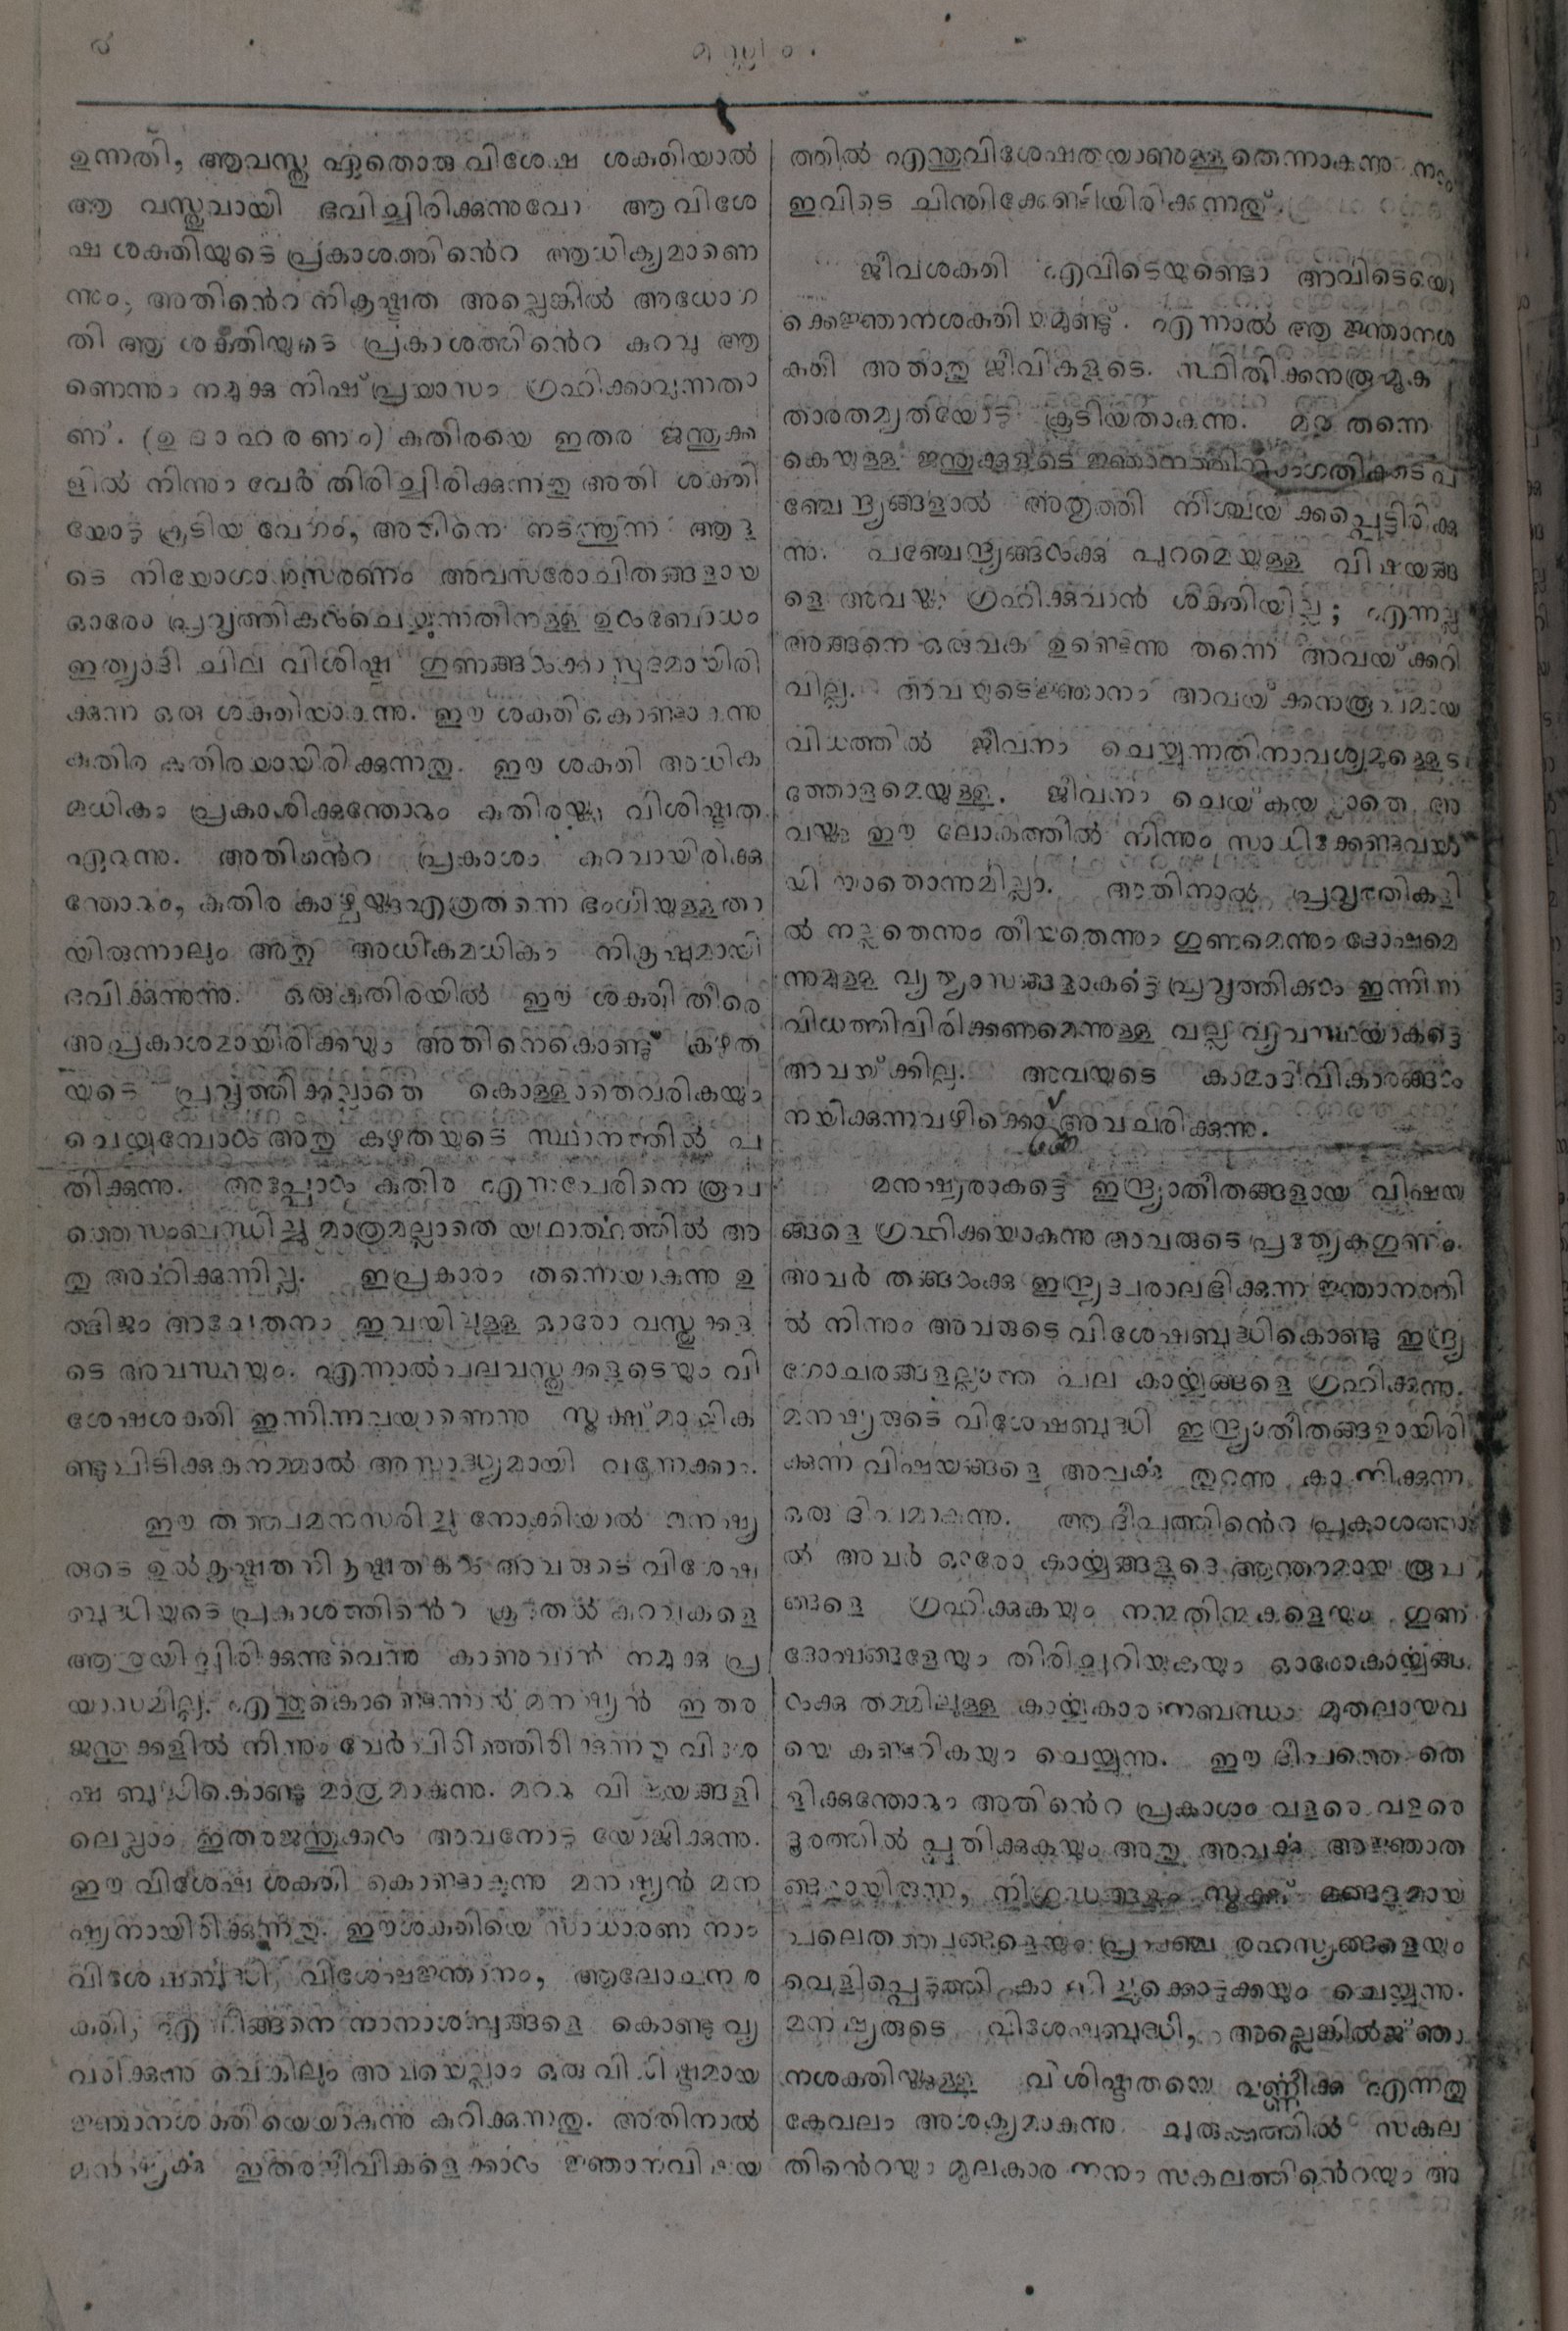 മുസ്ലിം.
ഉന്നതി, ആവസ്തു ഏതൊരു വിശേഷ ശക്തിയാൽ
ആ വസ്തുവായി ഭവിച്ചിരിക്കുന്നുവോ ആ വിശേ
ഷ ശക്തിയുടെ പ്രകാശത്തിൻെറ ആധിക്യമാണെ
ന്നും, അതിൻെറ നികൃഷ്ടത അല്ലെങ്കിൽ അധോഗ
തി ആ ശക്തിയുടെ പ്രകാശത്തിൻെറ കുറവു ആ
ണെന്നും നമുക്കു നിഷ്പ്രയാസം ഗ്രഹിക്കാവുന്നതാ
ണ്. (ഉദാഹരണം) കുതിരയെ ഇതര ജന്തുക്ക
ളിൽ നിന്നും വേർ തിരിച്ചിരിക്കുന്നതു അതി ശക്തി
യോടു കൂടിയ വേഗം, അതിനെ നടത്തുന്ന ആളു
ടെ നിയോഗാനുസരണം അവസരോചിതങ്ങളായ
ഓരോ പ്രവൃത്തികൾചെയ്യുന്നതിനുള്ള ഉൽബോധം
ഇത്യാദി ചില വിശിഷ്ട ഗുണങ്ങൾക്കാസ്പദമായിരി
ക്കുന്ന ഒരു ശക്തിയാകുന്നു. ഈ ശക്തികൊണ്ടാകുന്നു
കുതിര കുതിരയായിരിക്കുന്നതു. ഈ ശക്തി അധിക
മധികം പ്രകാശിക്കുന്തോറും കുതിരയ്ക്കു വിശിഷ്ടത
ഏറുന്നു. അതിൻെറ പ്രകാശം കുറവായിരിക്കു
ന്തോറും, കുതിര കാഴ്ചയ്ക്കുഎത്രതന്നെ ഭംഗിയുള്ളതാ
യിരുന്നാലും അതു അധികമധികം നികൃഷ്ടമായി
ഭവിക്കുന്നു. ഒരുകുതിരയിൽ ഈ ശക്തി തീരെ
അപ്രകാശമായിരിക്കയും അതിനെകൊണ്ട് കഴുത
യുടെ പ്രവൃത്തിക്കല്ലാതെ കൊള്ളാതെവരികയും
ചെയ്യുമ്പോൾ അതു കഴുതയുടെ സ്ഥാനത്തിൽ പ
തിക്കുന്നു. അപ്പോൾ കുതിര എന്നപേരിനെ രൂപ
ത്തെസംബന്ധിച്ചു മാത്രമല്ലാതെ യഥാർത്ഥത്തിൽ അ
തു അർഹിക്കുന്നില്ല. ഇപ്രകാരം തന്നെയാകുന്നു ഉ
ത്ഭിജം അചേതനം ഇവയിലുള്ള ഓരോ വസ്തുക്കളു
ടെ അവസ്ഥയും. എന്നാൽപലവസ്തുക്കളുടെയും വി
ശേഷശക്തി ഇന്നിന്നവയാണെന്നു സൂക്ഷ്മമായി ക
ണ്ടുപിടിക്കുകനമ്മാൽ അസാദ്ധ്യമായി വന്നേക്കാം.
ഈ തത്ത്വമനുസരിച്ചു നോക്കിയാൽ മനുഷ്യ
രുടെ ഉൽകൃഷ്ടതനികൃഷ്ടതകൾ അവരുടെ വിശേഷ
ബുദ്ധിയുടെ പ്രകാശത്തിൻെറ കൂടുതൽ കുറവുകളെ
ആശ്രയിച്ചിരിക്കുന്നുവെന്നു കാണുവാൻ നമുക്കു പ്ര
യാസമില്ല. എന്തുകൊണ്ടെന്നാൽ മനുഷ്യൻ ഇതര
ജന്തുക്കളിൽ നിന്നും വേർപിരിഞ്ഞിരിക്കുന്നതു വിശേ
ഷ ബുദ്ധികൊണ്ടു മാത്രമാകുന്നു. മററു വിഷയങ്ങളി
ലെല്ലാം ഇതരജന്തുക്കൾ അവനോടു യോജിക്കുന്നു.
ഈ വിശേഷ ശക്തി കൊണ്ടാകുന്നു മനുഷ്യൻ മനു
ഷ്യനായിരിക്കുന്നതു. ഈശക്തിയെ സാധാരണ നാം
വിശേഷബുദ്ധി, വിശേഷജ്ഞാനം, ആലോചനശ
ക്തി, എന്നിങ്ങനെ നാനാശബ്ദങ്ങളെ കൊണ്ടു വ്യ
വഹരിക്കുന്നു വെങ്കിലും അവയെല്ലാം ഒരു വിശിഷ്ടമായ
ജ്ഞാനശക്തിയെയാകുന്നു കുറിക്കുന്നതു. അതിനാൽ
മനുഷ്യർക്കു ഇതരജീവികളെക്കാൾ ജ്ഞാനവിഷയ
ത്തിൽ എന്തുവിശേഷതയാണുള്ളതെന്നാകുന്നു നാം
ഇവിടെ ചിന്തിക്കേണ്ടിയിരിക്കുന്നതു്.
ജീവശക്തി എവിടെയുണ്ടൊ അവിടെയെ
ക്കെജ്ഞാനശക്തിയുമുണ്ട്. എന്നാൽ ആ ജ്ഞാനശ
ക്തി അതാതു ജീവികളുടെ സ്ഥിതിക്കനുരൂപക
താരതമ്യതയോടു കൂടിയതാകുന്നു. മററു തന്നെ
കെയുള്ള ജന്തുക്കളുടെ ജ്ഞാനത്തി
ഞ്ചേന്ദ്ര്യങ്ങളാൽ അതൃത്തി നിശ്ചയിക്കപ്പെട്ടിരിക്കു
ന്നു. പഞ്ചേന്ദ്ര്യങ്ങൾക്കു പുറമെയുള്ള വിഷയങ്ങ
ളെ അവയ്ക്കു ഗ്രഹിക്കുവാൻ ശക്തിയില്ല; എന്നല്ല
അങ്ങനെ ഒരുവക ഉണ്ടെന്നു തന്നെ അവയ്ക്കറി
വില്ല. അവയുടെജ്ഞാനം അവയ്ക്കനുരൂപമായ
വിധത്തിൽ ജീവനം ചെയ്യുന്നതിനാവശ്യമുള്ളെട
ത്തോളമെയുള്ളു. ജീവനം ചെയ്കയല്ലാതെ അ
വയ്ക്കു ഈ ലോകത്തിൽ നിന്നും സാധിക്കേണ്ടവയാ
യി യാതൊന്നുമില്ലാ. അതിനാൽ പ്രവൃത്തികളി
ൽ നല്ലതെന്നും തിയ്യതെന്നും ഗുണമെന്നും ദോഷമെ
ന്നുമുള്ള വ്യത്യാസങ്ങളാകട്ടെ പ്രവൃത്തിക്കാം ഇന്നിന്ന
വിധത്തിലിരിക്കണമെന്നുള്ള വല്ല വ്യവസ്ഥയാകട്ടെ
അവയ്ക്കില്ല. അവയുടെ കാമാദിവികാരങ്ങൾ
നയിക്കുന്നവഴിക്കൊ അവ ചരിക്കുന്നു.
മനുഷ്യരാകട്ടെ ഇന്ദ്ര്യാതീതങ്ങളായ വിഷയ
ങ്ങളെ ഗ്രഹിക്കയാകുന്നു അവരുടെ പ്രത്യേകഗുണം.
അവർ തങ്ങൾക്കു ഇന്ദ്ര്യദ്വരാലഭിക്കുന്ന ജ്ഞാനത്തി
ൽ നിന്നും അവരുടെ വിശേഷബുദ്ധികൊണ്ടു ഇന്ദ്ര്യ
ഗോചരങ്ങളല്ലാത്ത പല കാര്യങ്ങളെ ഗ്രഹിക്കുന്നു.
മനുഷ്യരുടെ വിശേഷബുദ്ധി ഇന്ദ്ര്യാതീതങ്ങളായിരി
ക്കുന്ന വിഷയങ്ങളെ അവർക്കു തുറന്നു കാണിക്കുന്ന
ഒരു ദീപമാകുന്നു. ആ ദീപത്തിൻെറ പ്രകാശത്താ
ൽ അവർ ഓരോ കാര്യങ്ങളുടെ ആന്തരമായ രൂപ
ങ്ങളെ ഗ്രഹിക്കുകയും നന്മതിന്മകളെയും ഗുണ
ദോഷങ്ങളേയും തിരിച്ചറിയുകയും ഓരോകാര്യങ്ങ
ൾക്കു തമ്മിലുള്ള കാര്യകാരണബന്ധം മുതലായവ
യെ കണ്ടറികയും ചെയ്യുന്നു. ഈ ദീപത്തെ തെ
ളിക്കുന്തോറും അതിൻെറ പ്രകാശം വളരെ വളരെ
ദൂരത്തിൽ പ്പതിക്കുകയും അതു അവർക്കു അജ്ഞാത
ങ്ങളായിരുന്ന, നിഗ്രഢങ്ങളും സൂക്ഷ്മങ്ങളുമായ
പലതത്ത്വങ്ങളെയും പ്രപഞ്ച രഹസ്യങ്ങളെയും
വെളിപ്പെടുത്തി കാണിച്ചുക്കൊടുക്കയും ചെയ്യുന്നു.
മനുഷ്യരുടെ വിശേഷബുദ്ധി, അല്ലെങ്കിൽജ്ഞാ
നശക്തിയ്ക്കുള്ള വിശിഷ്ടതയെ വർണ്ണിക്കു എന്നതു
കേവലം അശക്യമാകുന്നു. ചുരുക്കത്തിൽ സകല
തിൻെറയും മൂലകാരണനും സകലത്തിൻെറയും അ